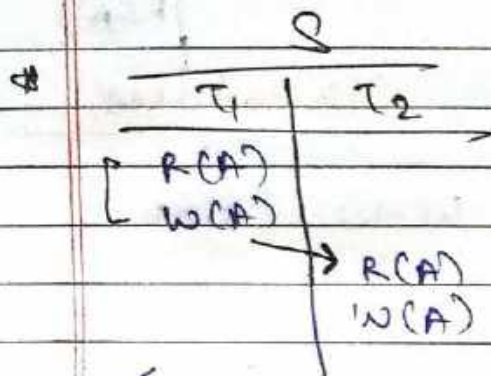 S
T1 T2
R(A)
W(A)
R(A)
W(A)